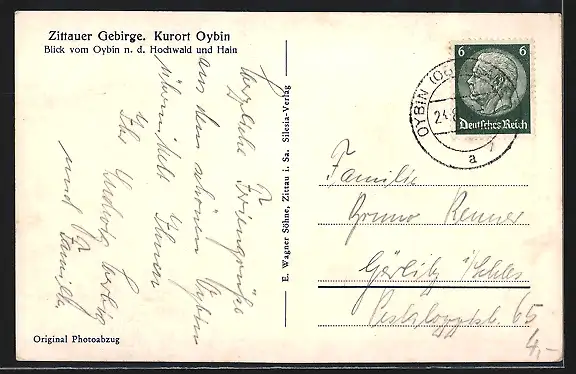 Zittauer Gebirge. Kurort Oybin
Blick vom Oybin n. d. Hochwald und Hain
Herzliche Feriengrüße
aus dem schönen Oybin
übermittelt Ihnen
Ihr Ludwig
und Familie
Original Photoabzug
E. Wagner Söhne, Zittau i. Sa. Silesia-Verlag
6 6
Deutsches Reich
OYBIN
a
Familie
Bruno Renner
Görlitz i/Schles
Pestalozzistr. 65
4,-